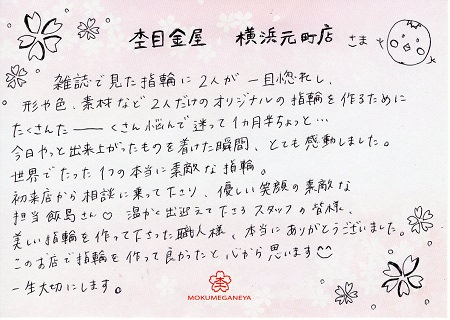 杢目金屋 横浜元町店 さま
雑誌で見た指輪に2人が一目惚れし、
形や色、素材など2人だけのオリジナルの指輪を作るために
たくさんた――くさん悩んで迷って1ヵ月半ちょっと…
今日やっと出来上がったものを着けた瞬間、とても感動しました。
世界でたった1つの本当に素敵な指輪。
初来店から相談に乗って下さり、優しい笑顔の素敵な
担当飯島さん♡ 温かく出迎えて下さるスタッフの皆様、
美しい指輪を作って下さった職人様、本当にありがとうございました。
このお店で指輪を作って良かったと心から思います
一生大切にします。
MOKUMEGANEYA